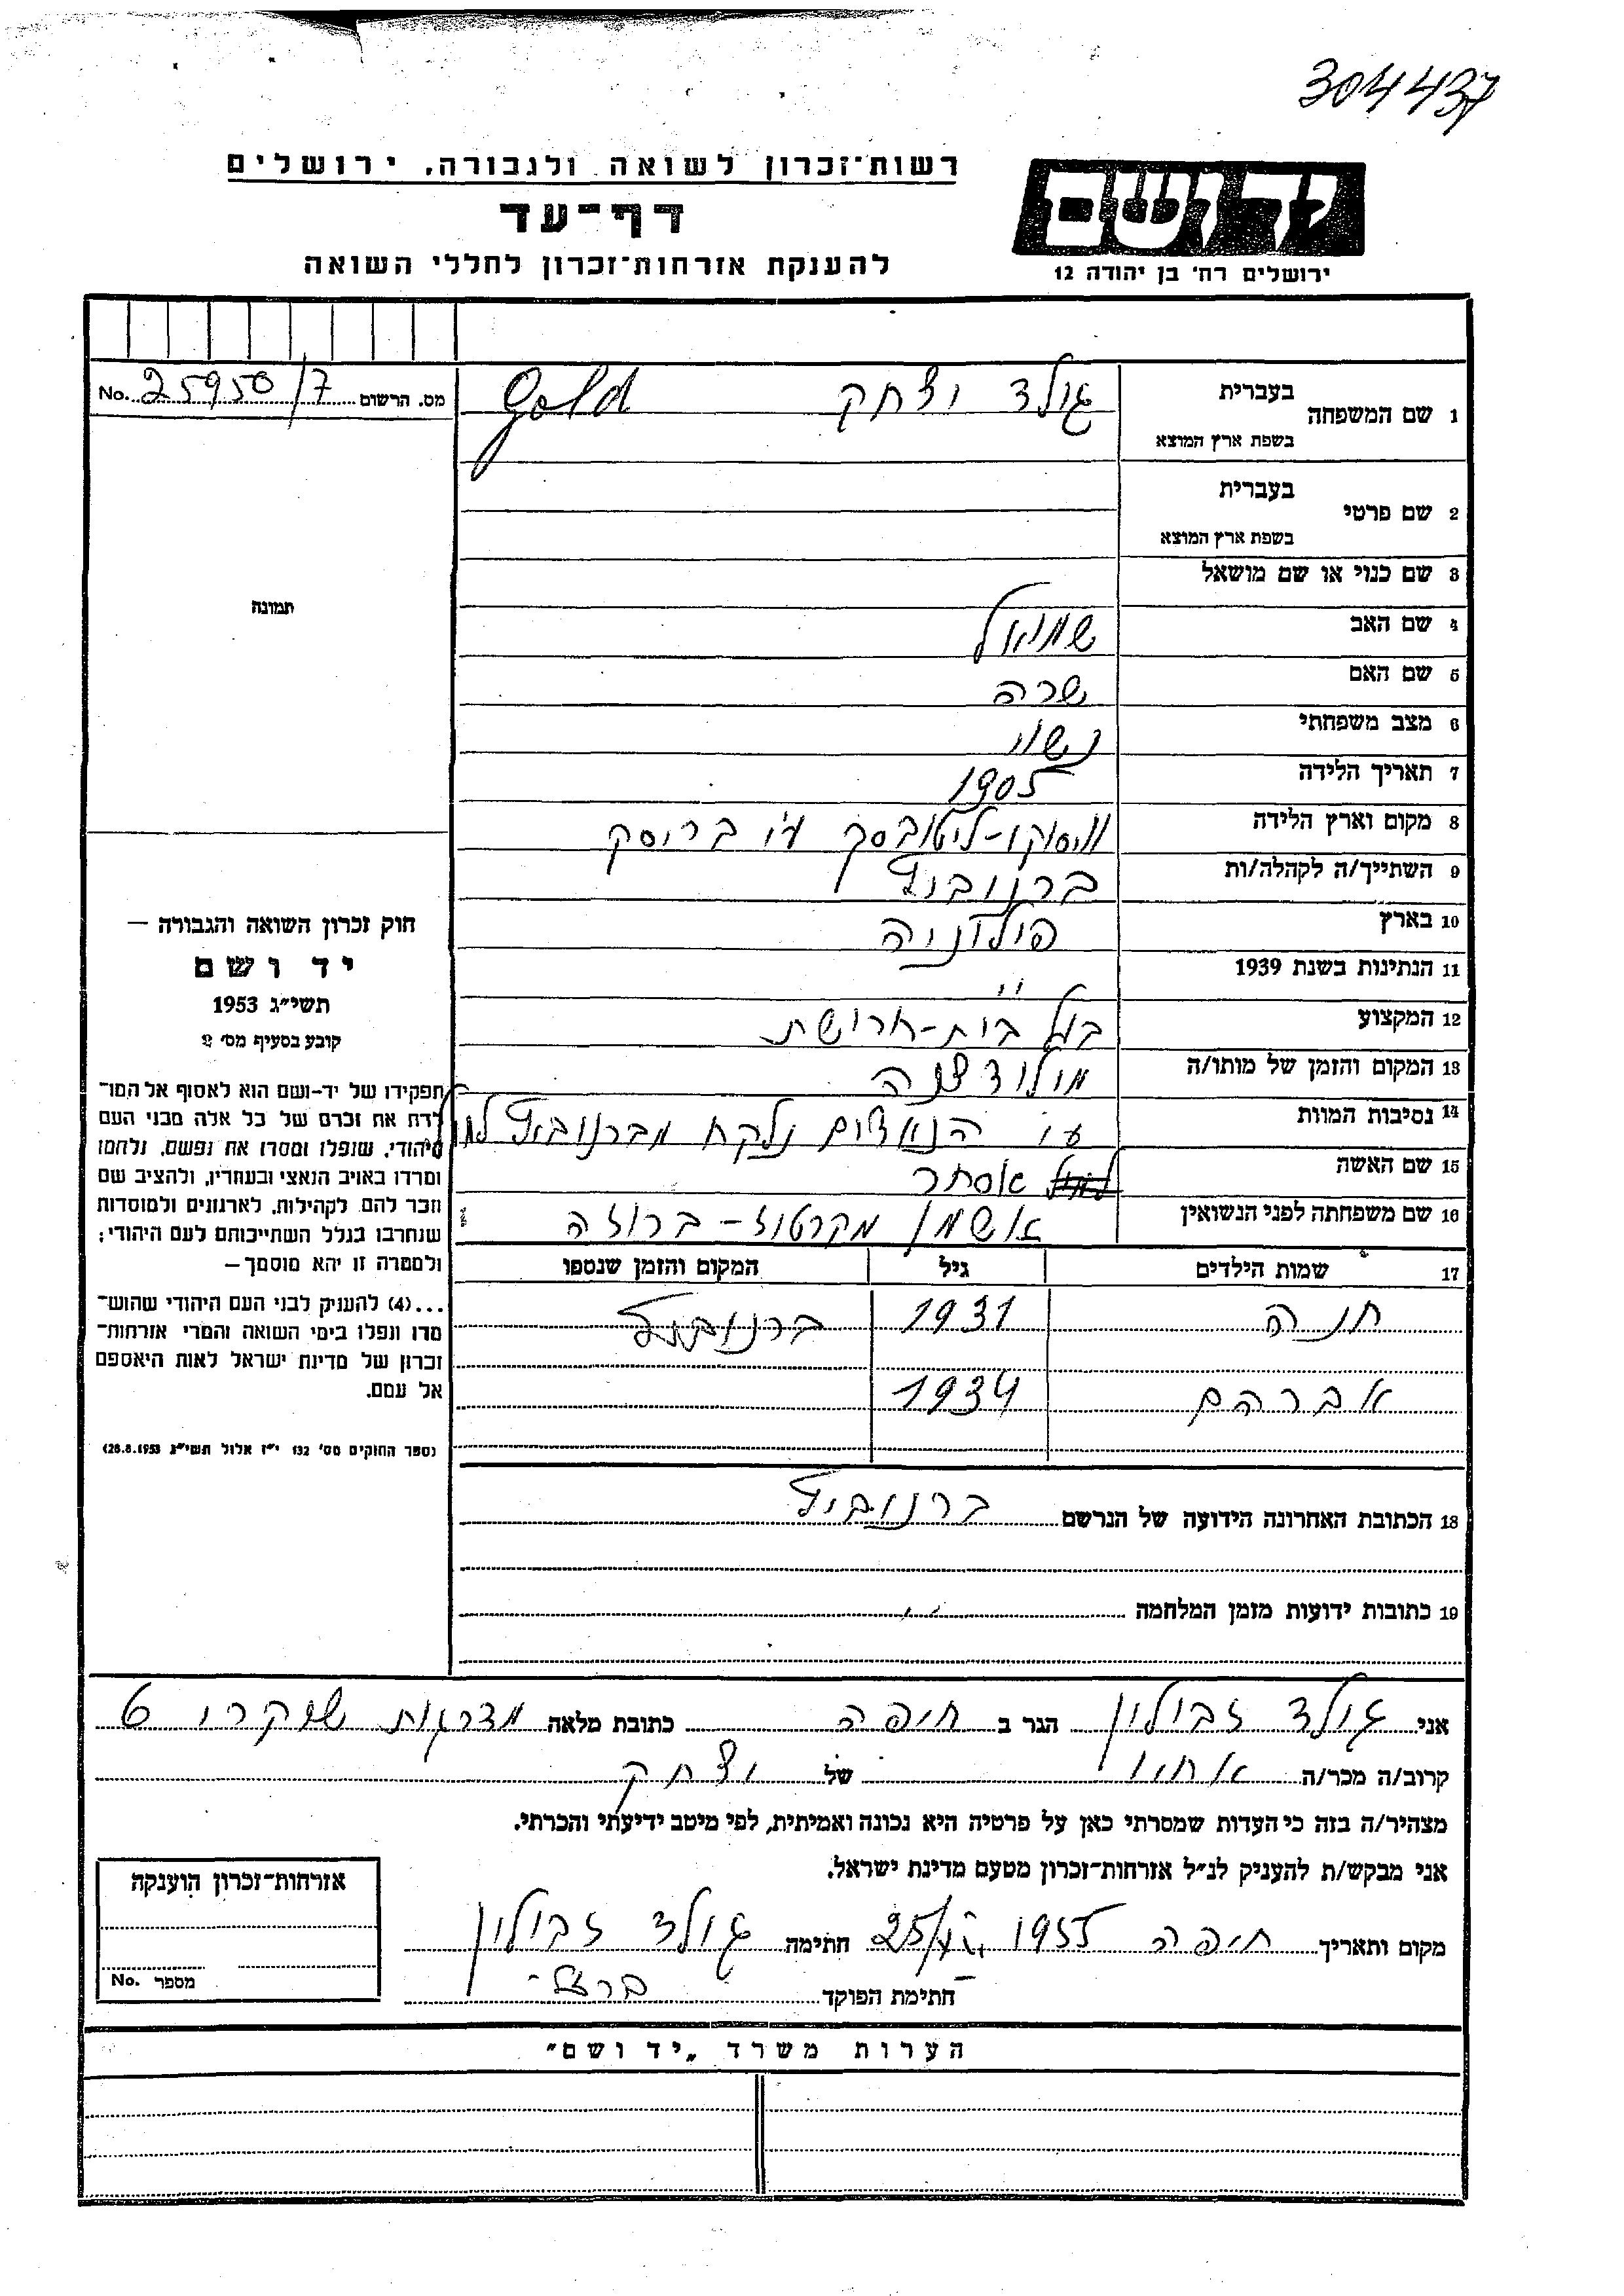 304437
רשות־זכרון לשואה ולגבורה, ירושלים
דף־עד
להענקת אזרחות־זכרון לחללי השואה
יד ושם
ירושלים רח' בן יהודה 12
מס. הרשום 25950/7 No.
1 שם המשפחה בעברית גולד יצחק Gold
בשפת ארץ המוצא
2 שם פרטי בעברית
בשפת ארץ המוצא
3 שם כנוי או שם מושאל
4 שם האב שמואל
5 שם האם שרה
6 מצב משפחתי נשוי
7 תאריך הלידה 1905
8 מקום וארץ הלידה וויסוקו-ליטובסק ע"י בריסק
9 השתייך/ה לקהלה/ות ברנוביץ
10 בארץ פולוניה
11 הנתינות בשנת 1939 "
12 המקצוע בעל בית-חרושת
13 המקום והזמן של מותו/ה מולודצנה
14 נסיבות המוות ע"י הנאצים נלקח מברנוביץ
15 שם האשה אסתר
16 שם משפחתה לפני הנשואין מקרטוז-ברוזה
17 שמות הילדים גיל המקום והזמן שנספו
חנה 1931 ברנוביץ
אברהם 1934
18 הכתובת האחרונה הידועה של הנרשם ברנוביץ
19 כתובות ידועות מזמן המלחמה "
תמונה
חוק זכרון השואה והגבורה —
יד ושם
תשי"ג 1953
קובע בסעיף מס' 2
תפקידו של יד-ושם הוא לאסוף אל המו־
לדת את זכרם של כל אלה מבני העם
היהודי, שנפלו ומסרו את נפשם, נלחמו
ומרדו באויב הנאצי ובעוזריו, ולהציב שם
וזכר להם לקהילות, לארגונים ולמוסדות
שנחרבו בגלל השתייכותם לעם היהודי;
ולמטרה זו יהא מוסמך —
...(4) להעניק לבני העם היהודי שהוש־
מדו ונפלו בימי השואה והמרי אזרחות־
זכרון של מדינת ישראל לאות היאספם
אל עמם.
(ספר החוקים מס' 132 י"ז אלול תשי"ג 28.8.1953)
אני גולד זבולון הגר ב חיפה כתובת מלאה מדרגות 6
קרוב/ה מכר/ה אחיו של יצחק
מצהיר/ה בזה כי העדות שמסרתי כאן על פרטיה היא נכונה ואמיתית, לפי מיטב ידיעתי והכרתי.
אני מבקש/ת להעניק לנ"ל אזרחות־זכרון מטעם מדינת ישראל.
מקום ותאריך חיפה 1955 חתימה גולד זבולון
חתימת הפוקד
אזרחות־זכרון הוענקה
מספר No.
הערות משרד "יד ושם"